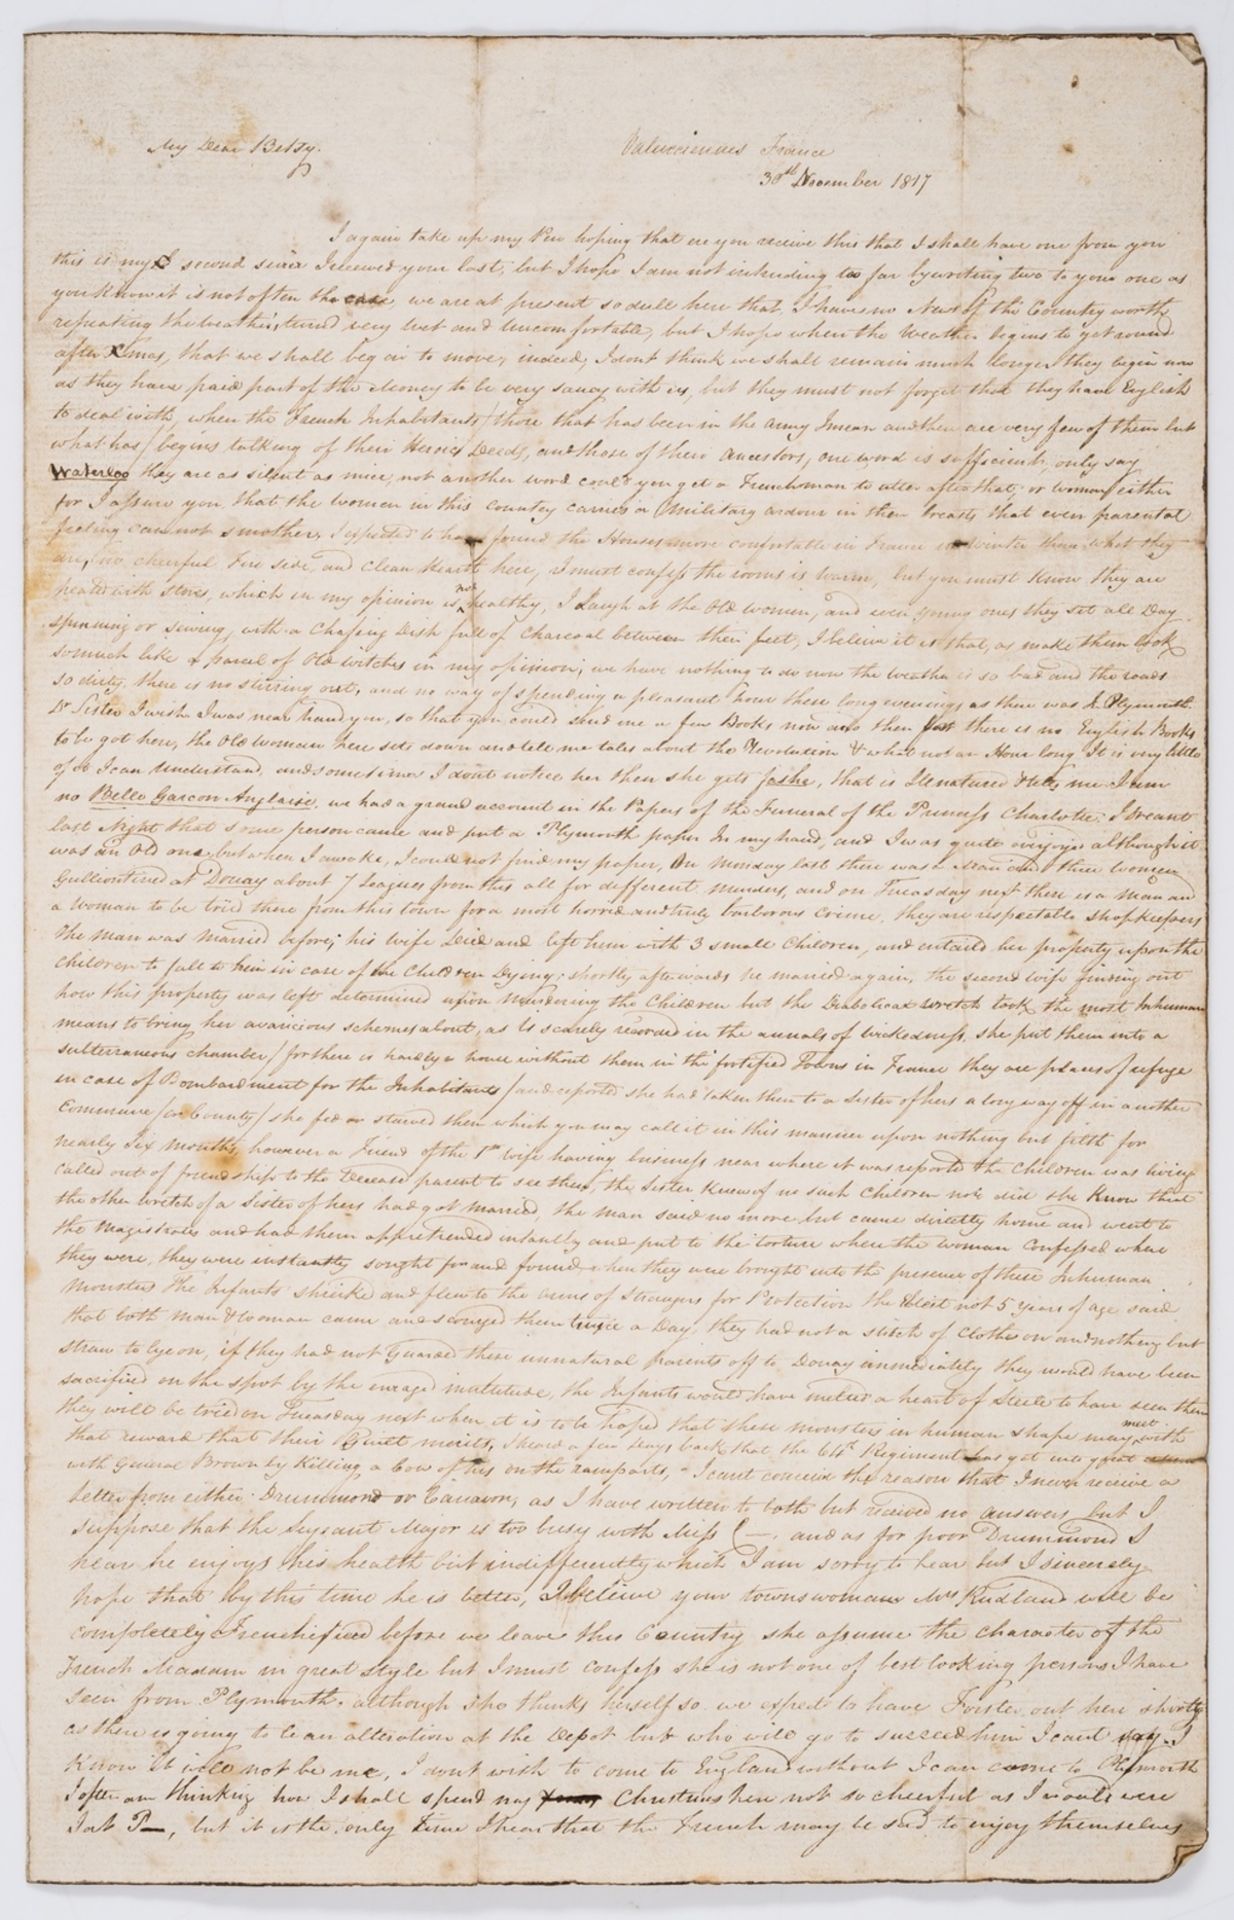 My Dear Betsy.
Valencciennes France
30th November 1817
I again take up my Pen hoping that ere you receive this that I shall have one from you
this is my second since I received your last, but I hope I am not intruding too far by writing two to your one as
you know it is not often the case, we are at present so dull here that, I have no News of this Country worth
repeating the weather, turnd very wet and Uncomfortable, but I hope when the Weather begins to get round
after Xmas, that we shall begin to move, indeed, I dont think we shall remain much longer they begin now
as they have paid part of the Money to be very saucy with us, but they must not forget that they have English
to deal with, when the French Inhabitants / those that has been in the army I mean and there are very few of them but
what has / begins talking of their Heroic Deeds, and those of their Ancestors, one word is sufficient, only say
Waterloo they are as silent as mice, not another word could you get a Frenchman to utter after that, or woman either
for I assure you that the women in this country carries a Military ardour in their breasts that even parental
feeling can not smother, I expected to have found the Houses more comfortable in France in winter than what they
are, no cheerful Fire side, and clean Hearth here, I must confess the rooms is warm, but you must Know they are
heated with stoves, which in my opinion is not healthy, I Laugh at the Old women, and even young ones they set all Day
spinning or sewing, with a Chafing Dish full of Charcoal between their feet, I believe it is that, as make them look
so much like a parcel of Old witches in my opinion; we have nothing to do now the weather is so bad and the roads
so dirty, there is no stirring out, and no way of spending a pleasant hour these long evenings, as there was in Plymouth
Dr Sister I wish I was near hand you, so that you could send me a few Books now and then for there is no English Books
to be got here, the Old woman here sets down and tells me tales about the Revolution & what not an Hour long It is very little
of it I can Understand, and sometimes I dont notice her then she gets fashe, that is Illnatured & tells me I am
no Belle Garcon Anglaise, we had a grand account in the Papers of the Funeral of the Princess Charlotte, I Dreamt
last Night that some person came and put a Plymouth paper In my hand, and I was quite overjoyed although it
was an Old one, but when I awoke, I could not find my paper, On Monday last there was a Man and three Women
Gulliontined at Douay about 7 Leagues from this all for different murders, and on Tuesday next there is a man and
a woman to be tried there from this town for a most horrid and truly barborous crime, they are respectable shopkeepers
the man was married before, his wife Died and left him with 3 small Children, and entaild her property upon the
Children to fall to him in case of the Children Dying, shortly afterwards he maried again, the second wife finding out
how this property was left determined upon Murdering the Children but the Diabolical wretch took the most Inhuman
means to bring her avaricious schemes about, as is scarely recorded in the annals of wickedness, she put them into a
subterraneous chamber / for there is hardly a house without them in the fortified Towns in France they are places of refuge
in case of Bombardment for the Inhabitants / and reported she had taken them to a Sister of hers a long way off in another
Commune / or County / she fed or starved them which you may call it in this manner upon nothing but filth for
nearly Six months, however a Friend of the 1st wife having business near where it was reported the Children was living
called out of friendship to the Deceased parent to see them, the Sister Knew of no such Children nor did she Know that
the other wretch of a Sister of hers had got married, the man said no more but came directly home and went to
the Magistrates and had them apprehended instantly and put to the torture when the woman Confessed where
they were, they were instantly sought for and found when they were brought into the presence of these Inhuman
Monsters The Infants shrieked and flew to the arms of Strangers for Protection the eldest not 5 years of age said
that both man & woman came and scourged them twice a Day, they had not a stitch of Cloths on and nothing but
straw to lye on, if they had not Guarded these unnatural parents off to Douay immediately they would have been
sacrificed on the spot by the enraged multitude, the Infants would have melted a heart of Steel to have seen them
they will be tried on Tuesday next when it is to be hoped that these monsters in human shape may meet with
that reward that their Guilt merits, I heard a few days back that the 64th Regiment has got into great
with General Brown by Killing a Cow of his on the ramparts, I cant conceive the reason that I never receive a
letter from either Drummond or, as I have written to both but received no answers but I
suppose that the Sergeant Major is too busy with Miss C—, and as for poor Drummond I
hear he enjoys his health but indifferently which I am sorry to hear but I sincerely
hope that by this time he is better, I believe your townswoman Mrs Rudland will be
completely Frenchefied before we leave this Country she assume the character of the
French Madam in great style but I must confess she is not one of best looking persons I have
seen from Plymouth. although she thinks herself so we expect to have Forster out here shortly
as there is going to be an alteration at the Depot but who will go to succeed him I cant say. I
Know it will not be me, I dont wish to come to England without I can come to Plymouth
I often am thinking how I shall spend my Christmas here not so cheerful as I would were
I at P—, but it is the only time I hear that the French may be said to enjoy themselves